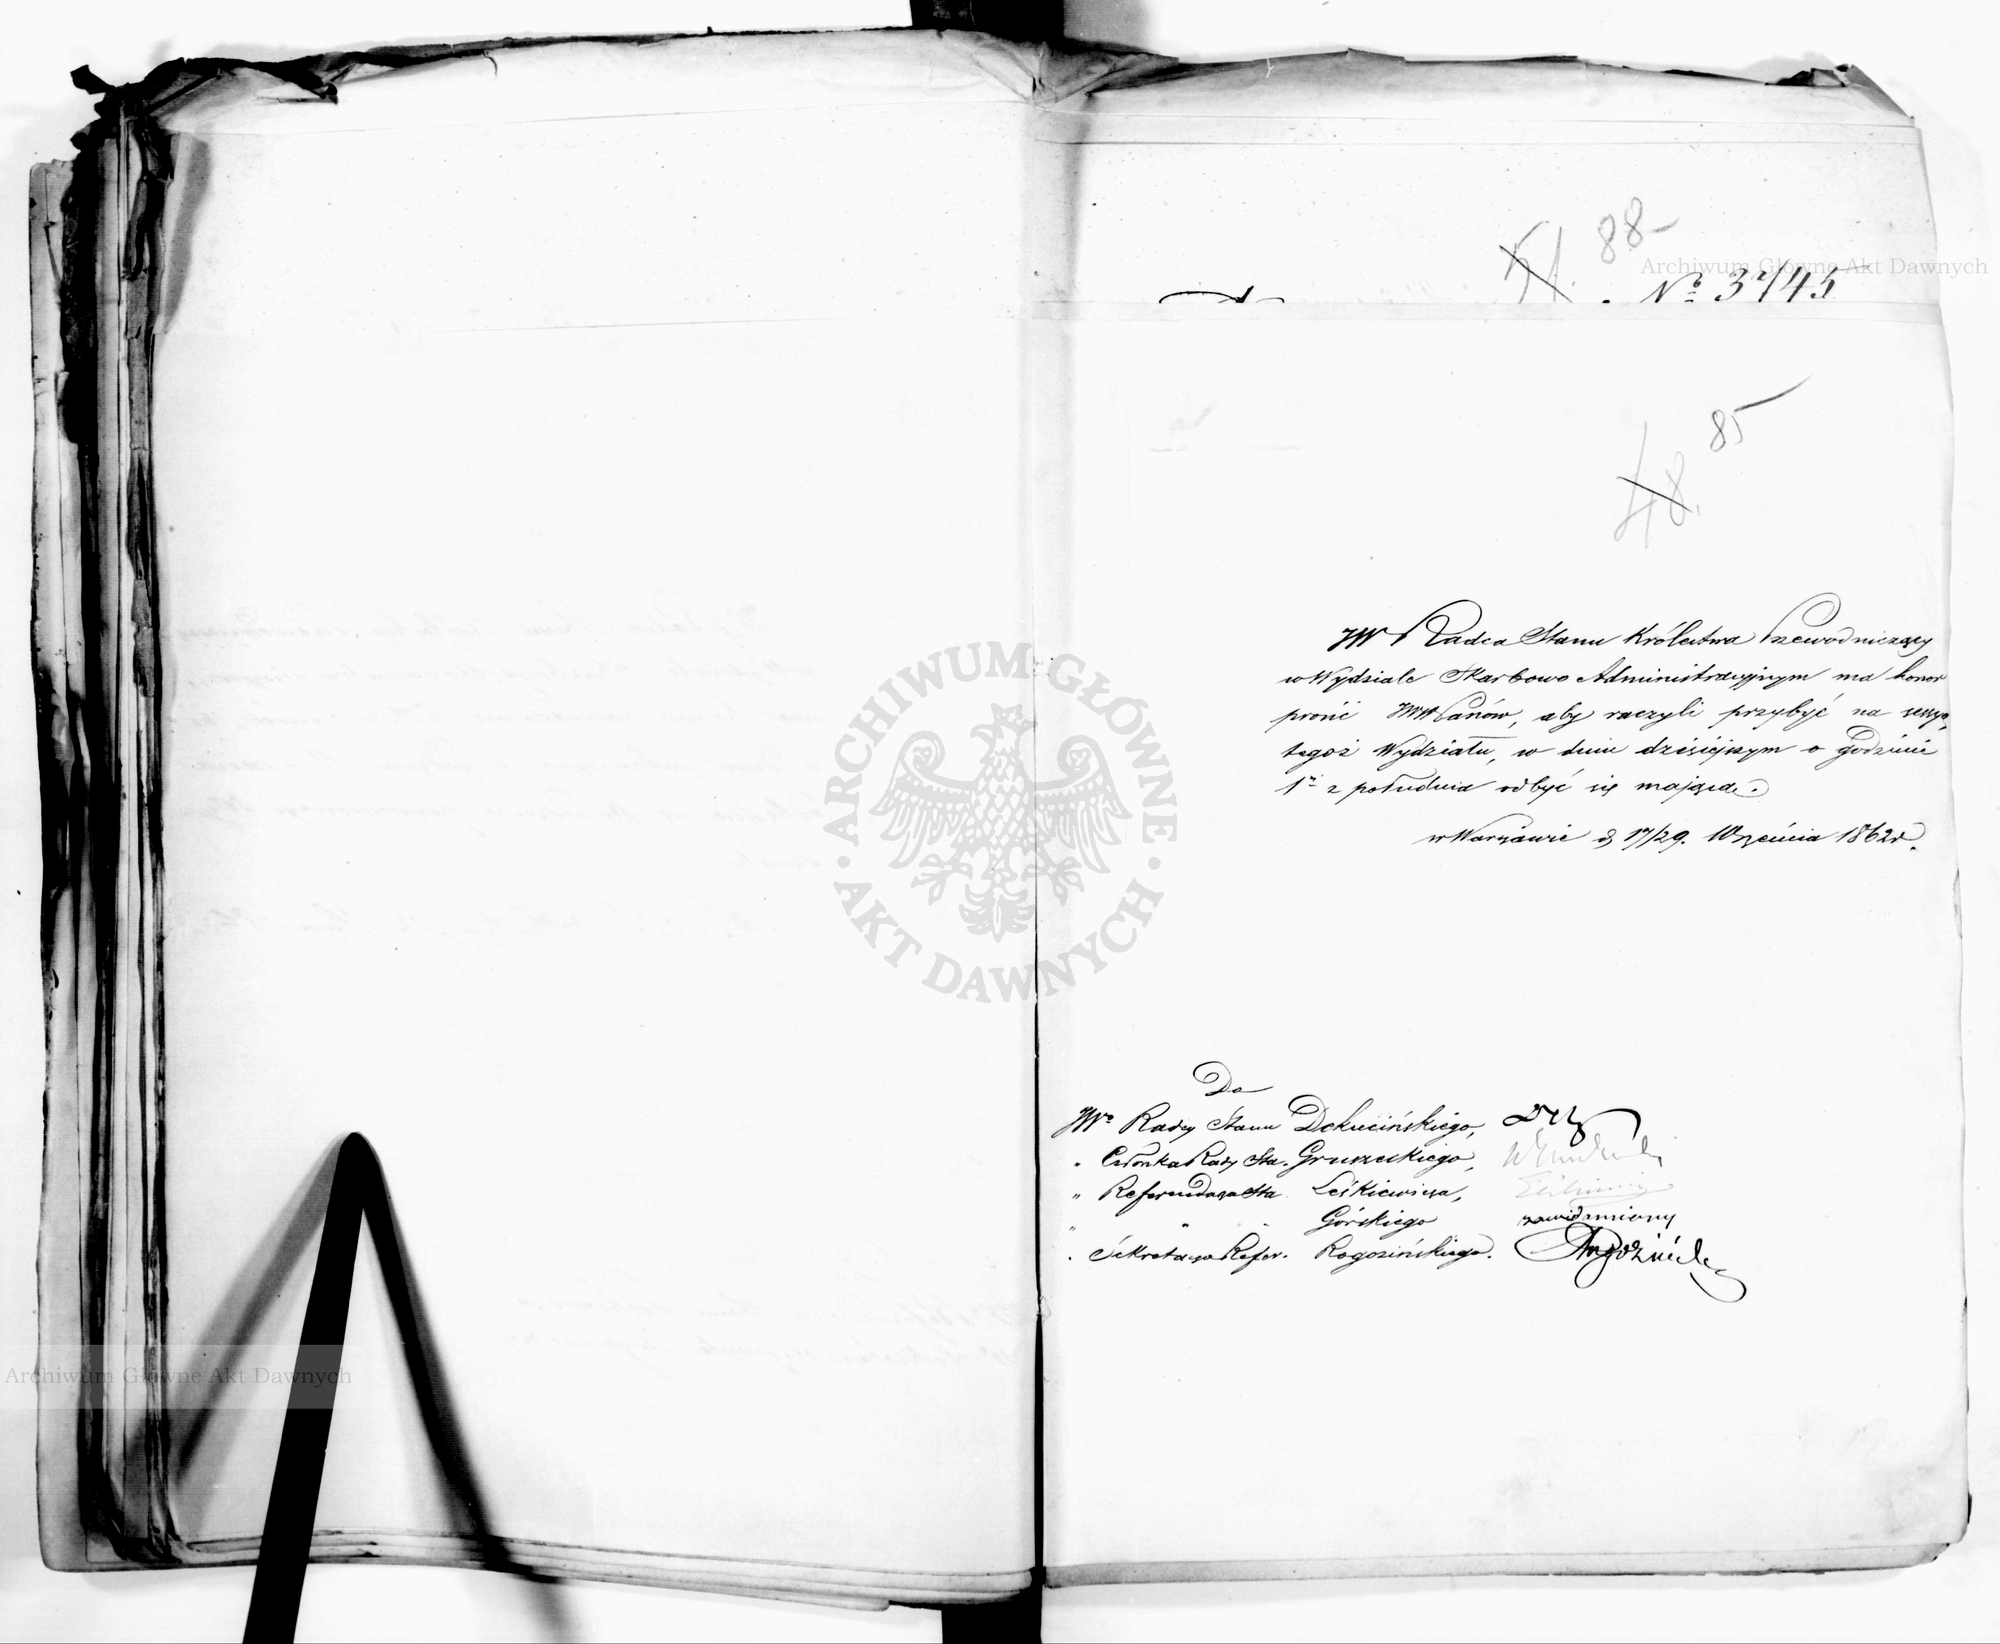 51. 88
Nº 3745
48. 85
JW Radca Stanu Królestwa Przewodniczący
w Wydziale Skarbowo Administracyjnym ma honor
prosić JWW Panów, aby raczyli przybyć na sessyą
tegoż Wydziału, w dniu dzisiejszym o godzinie
1éj z południa odbyć się mającą.
w Warszawie d 17/29. Września 1862 r.
Do
JWo Radcy Stanu Dekucińskiego,
" Członka Rady Sta. Gruszeckiego,
" Referendarza Sta Leśkiewicza,
" " " Górskiego zawiadomiony
" Sekretarza Refer. Rogozińskiego.
ARCHIWUM GŁÓWNE
AKT DAWNYCH
Archiwum Główne Akt Dawnych
Archiwum Główne Akt Dawnych